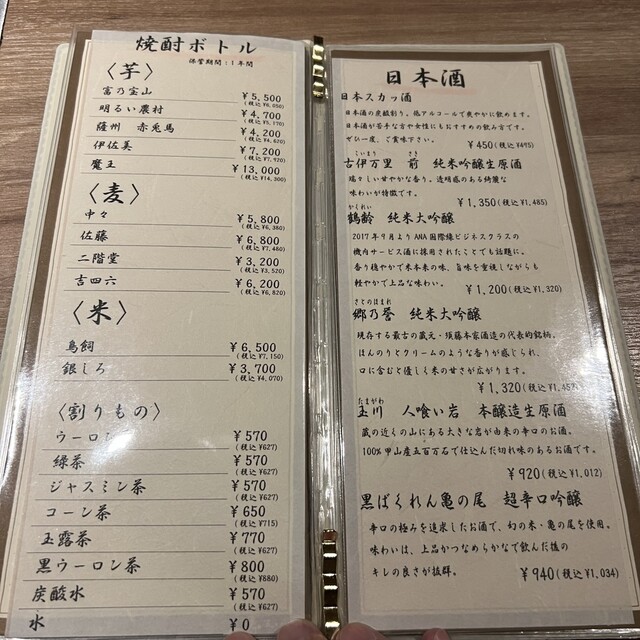 焼酎ボトル
保管期間：1年間
〈芋〉
富乃宝山 ¥5,500
(税込¥6,050)
明るい農村 ¥4,700
(税込¥5,170)
薩州 赤兎馬 ¥4,200
(税込¥4,620)
伊佐美 ¥7,200
(税込¥7,920)
魔王 ¥13,000
(税込¥14,300)
〈麦〉
中々 ¥5,800
(税込¥6,380)
佐藤 ¥6,800
(税込¥7,480)
二階堂 ¥3,200
(税込¥3,520)
吉四六 ¥6,200
(税込¥6,820)
〈米〉
鳥飼 ¥6,500
(税込¥7,150)
銀しろ ¥3,700
(税込¥4,070)
〈割りもの〉
ウーロン ¥570
(税込¥627)
緑茶 ¥570
(税込¥627)
ジャスミン茶 ¥570
(税込¥627)
コーン茶 ¥650
(税込¥715)
玉露茶 ¥770
(税込¥627)
黒ウーロン茶 ¥800
(税込¥880)
炭酸水 ¥570
(税込¥627)
水 ¥0
日本酒
日本スカッ酒
日本酒の炭酸割り。低アルコールで爽やかに飲めます。
日本酒が苦手な方や女性にもおすすめの飲み方です。
ぜひ一度、ご賞味下さい。
¥450(税込¥495)
こいまり さき
古伊万里 前 純米吟醸生原酒
瑞々しい甘やかな香り。透明感のある綺麗な
味わいが特徴です。
¥1,350(税込¥1,485)
かくれい
鶴齢 純米大吟醸
2017年9月よりANA国際線ビジネスクラスの
機内サービス酒に採用されたことでも話題に。
香り穏やかで米本来の味、旨味を重視しながらも
軽やかで上品な味わい。
¥1,200(税込¥1,320)
さとのほまれ
郷乃誉 純米大吟醸
現存する最古の蔵元・須藤本家酒造の代表的銘柄。
ほんのりとクリームのような香りが感じられ、
口に含むと優しく米の甘さが広がります。
¥1,320(税込¥1,452)
たまがわ
玉川 人喰い岩 本醸造生原酒
蔵の近くの山にある大きな岩が由来の辛口のお酒。
100%甲山産五百万石で仕込んだ切れ味のあるお酒です。
¥920(税込¥1,012)
黒ばくれん亀の尾 超辛口吟醸
辛口の極みを追求したお酒で、幻の米・亀の尾を使用。
味わいは、上品かつなめらかなで飲んだ後の
キレの良さが抜群。
¥940(税込¥1,034)